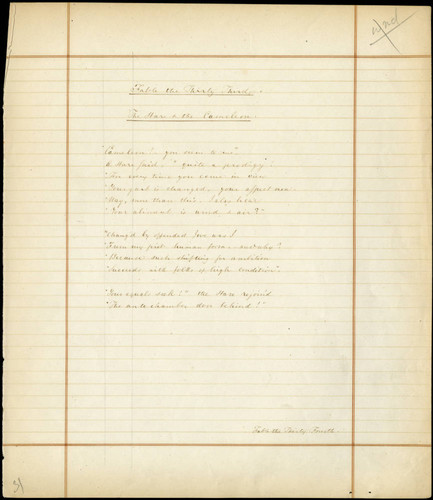 Fable the Thirty Third.
The Hare & the Cameleon.
"Cameleon! - you seem to me"
A Hare said, "quite a prodigy.
"For every time you come in view
"Your coat is changed, your aspect new.
"Nay, more than this - I also hear
"Your aliment is wind & air?"
"Chang'd by offended Jove was I
"From my first human form - and why?
"Because such shifting for ambition
"Succeeds with folks of high condition".
"Your equals such!" the Hare rejoin'd
"The ante-chamber door behind!"
Fable the Thirty Fourth